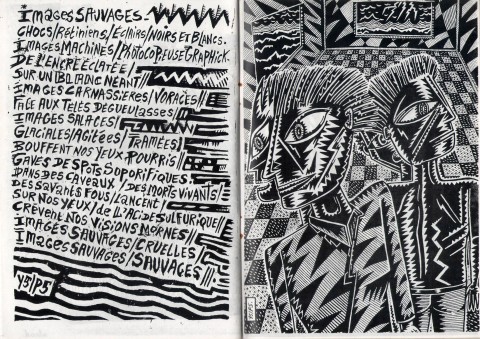 IMAGES SAUVAGES_
CHOCS/RÉTINIENS/ECLAIRS/NOIRS ET BLANCS_
IMAGES MACHINES/PHOTOCOPIEUSE GRAPHICK_
DE L'ENCRE ÉCLATÉE/
SUR UN BLANC NÉANT/
IMAGES CARNASSIÈRES/VORACES//
FACE AUX TÉLÉS DÉGUEULASSES/
IMAGES SALACES/
GLACIALES/AGITÉES/TRAMÉES
BOUFFENT NOS YEUX POURRIS
GAVÉS DE SPOTS SOPORIFIQUES
DANS DES CAVEAUX/DES MORTS VIVANTS/
DES SAVANTS FOUS/LANCENT/
SUR NOS YEUX/DE L'ACIDE SULFURIQUE//
CRÈVENT NOS VISIONS MORNES//
IMAGES SAUVAGES/CRUELLES/
IMAGES SAUVAGES/SAUVAGES///
Y5/P5